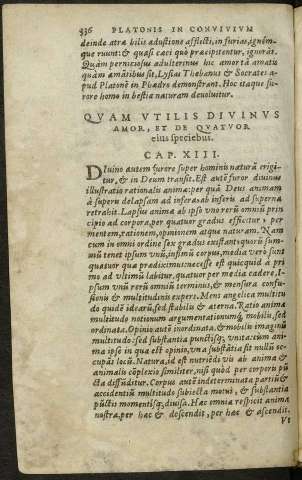 336 PLATONIS IN CONVIVIVM
deinde atræ bilis adustione afflecti, in furias, ignémq́;
que ruunt: & quasi cæci quò præcipitentur, ignorãt.
Quàm perniciosus adulterinus hic amor tã amatis
quàm amãtibus sit, Lysias Thebanus & Socrates a-
pud Platonẽ in Phædro demonstrant. Hoc itaque fu-
rore homo in bestiæ naturam deuoluitur.
QVAM VTILIS DIVINVS
AMOR, ET DE QVATVOR
eius speciebus.
CAP. XIII.
Diuino autem furore super hominis naturã erigi-
tur, & in Deum transit. Est autẽ furor diuinus
illustratio rationalis animæ: per quã Deus animam
à superis delapsam ad inferas ab inferis ad superna
retrahit. Lapsus animæ ab ipso vno rerũ omniũ prin
cipio ad corpora, per quatuor gradus efficitur, per
mentem, rationem, opinionem atque naturam. Nam
cum in omni ordine sex gradus existant: quorũ sum-
mũ tenet ipsum vnũ, infimũ corpus, media verò sunt
quatuor quæ prædiximus: necesse est quicquid à pri
mo ad vltimũ labitur, quatuor per media cadere. I-
psum vnũ rerũ omniũ terminus, & mensura confu-
sionis & multitudinis expers. Mens angelica multitu
do quidẽ idearũ sed stabilis & æterna. Ratio animæ
multitudo notionum argumentationumq́;, mobilis, sed
ordinata. Opinio autẽ inordinata, & mobilis imaginũ
multitudo: sed substantia punctisq́; vnita: cùm ani-
ma ipso in qua est opinio, vna substãtia sit nullũ oc-
cupãs locũ. Natura, id est nutriẽdi vis ab anima &
animalis cõplexio similiter, nisi quòd per corporis pũ
cta diffũditur. Corpus autẽ indeterminata partiũ &
accidentiũ multitudo subiecta motui, & substantia
pũctis momentisq́; diuisa. Hæc omnia respicit anima
nostra, per hæc & descendit, per hæc & ascendit.
Vt